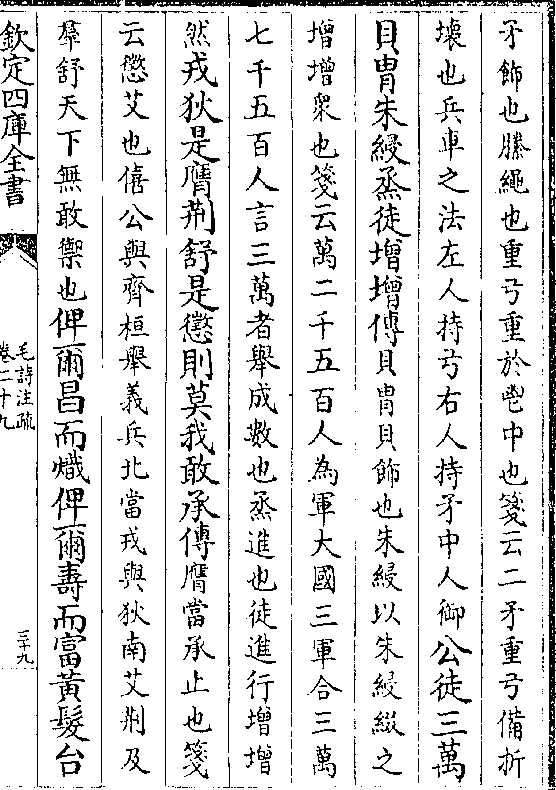 矛飾也縢繩也重弓重於鬯中也箋云二矛重弓備折
壞也兵車之法左人持弓右人持矛中人御公徒三萬
貝胄朱綅烝徒增增傳貝胄貝飾也朱綅以朱綅綴之
增增衆也箋云萬二千五百人為軍大國三軍合三萬
七千五百人言三萬者舉成數也烝進也徒進行增增
然戎狄是膺荆舒是懲則莫我敢承傳膺當承止也箋
云懲艾也僖公與齊桓舉義兵北當戎與狄南艾荆及
羣舒天下無敢禦也俾爾昌而熾俾爾壽而富黃髮台
欽定四庫全書
毛詩注疏
卷二十九
三十九